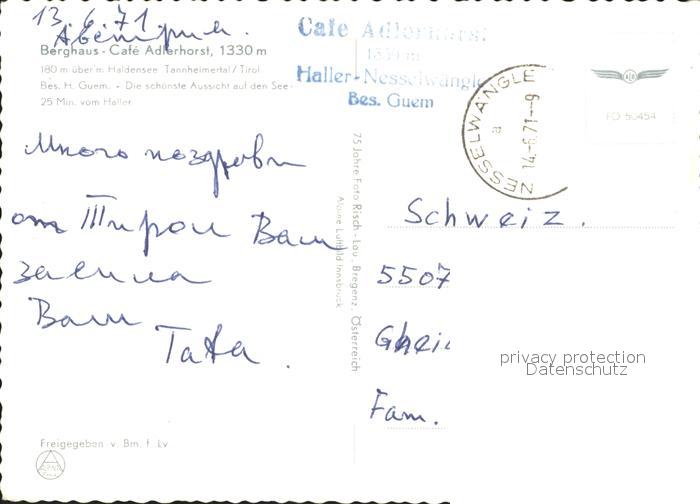 13. 6. 71.
Berghaus - Café Adlerhorst, 1330 m
180 m über'm Haldensee Tannheimertal / Tirol
Bes. H. Guem. - Die schönste Aussicht auf den See -
25 Min. vom Haller
Cafe Adlerhorst
1330 m
Haller-Nesselwängle
Bes. Guem
NESSELWÄNGLE
14.-6.71-9
a
FO 50454
Много поздрави
от Тирол Ваш
Ваш
Тата.
75 Jahre Foto Risch - Lau, Bregenz, Österreich
Alpine Luftbild Innsbruck
Schweiz.
5507
Fam.
privacy protection
Datenschutz
Freigegeben v. Bm. f. Lv